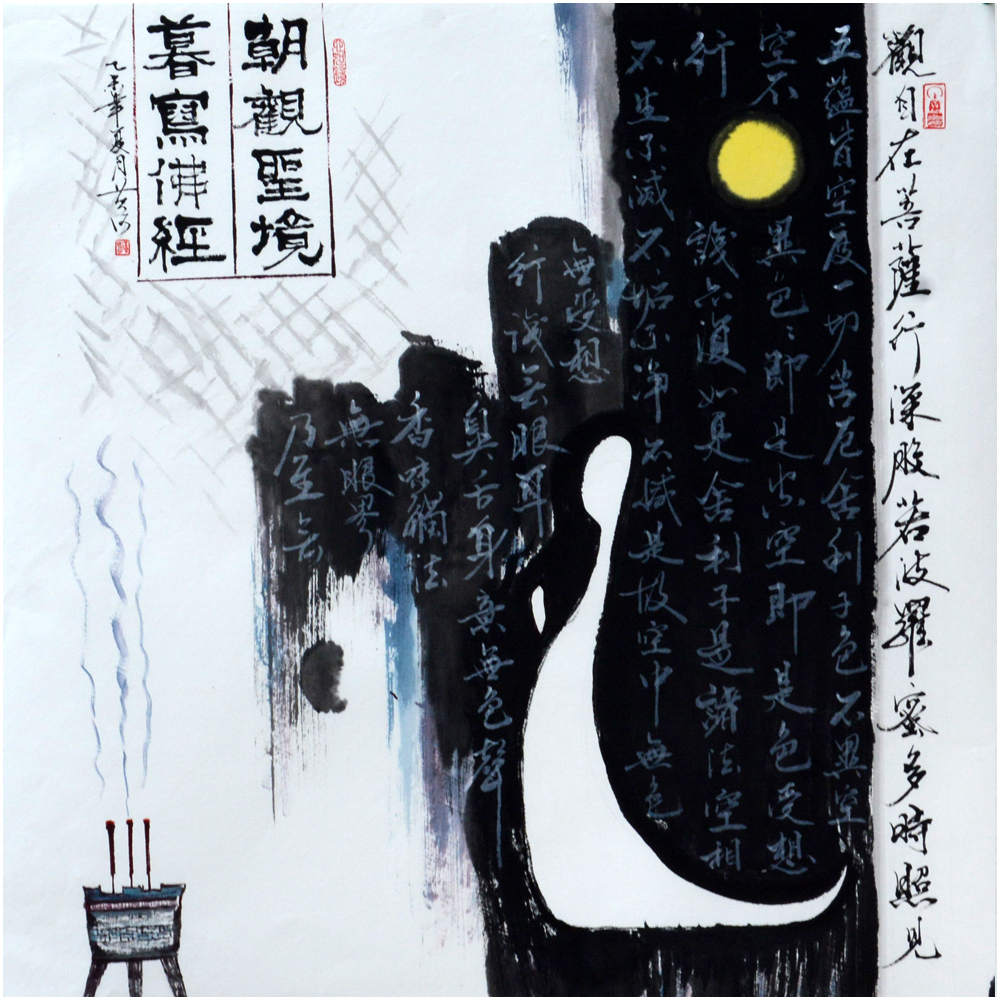 觀自在菩薩行深般若波羅蜜多時照見
五蘊皆空度一切苦厄舍利子色不異空
空不異色〻即是空空即是色受想
行識亦復如是舍利子是諸法空相
不生不滅不垢不淨不減是故空中無色
無受想
行識无眼耳
鼻舌身意無色聲
香味觸法
無眼界
乃至无
朝觀聖境
暮寫佛經
乙未年夏月